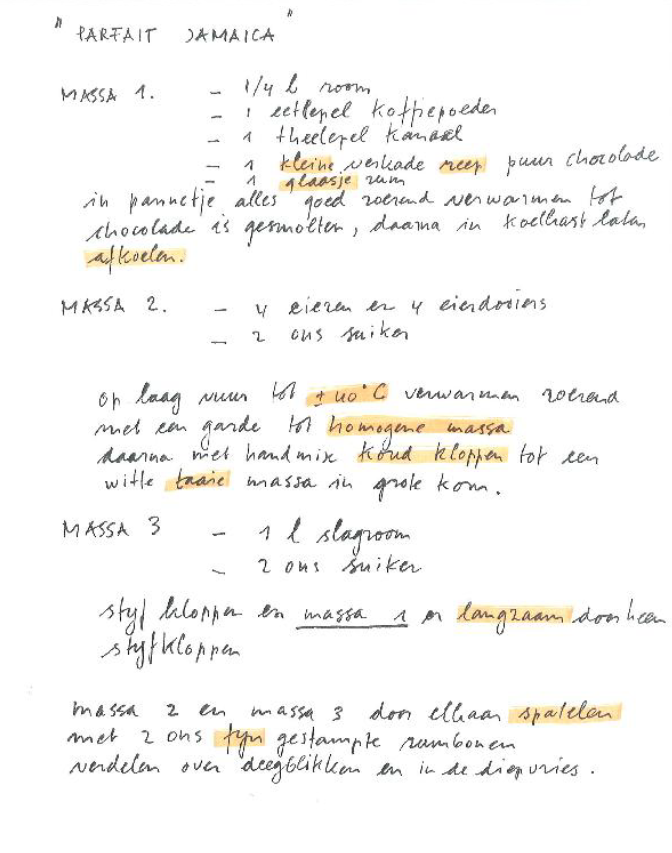 " PARFAIT JAMAICA "
MASSA 1. - 1/4 l room
- 1 eetlepel koffiepoeder
- 1 theelepel kaneel
- 1 kleine verkade reep puur chocolade
- 1 glaasje rum
in pannetje alles goed roerend verwarmen tot
chocolade is gesmolten, daarna in koelkast laten
afkoelen.
MASSA 2. - 4 eieren en 4 eierdooiers
- 2 ons suiker
op laag vuur tot ± 40°C verwarmen roerend
met een garde tot homogene massa
daarna met handmix koud kloppen tot een
witte taaie massa in grote kom.
MASSA 3 - 1 l slagroom
- 2 ons suiker
styf kloppen en massa 1 er langzaam doorheen
styfkloppen
massa 2 en massa 3 door elkaar spatelen
met 2 ons fyn gestampte rumbonen
verdelen over deegblikken en in de diepvries.